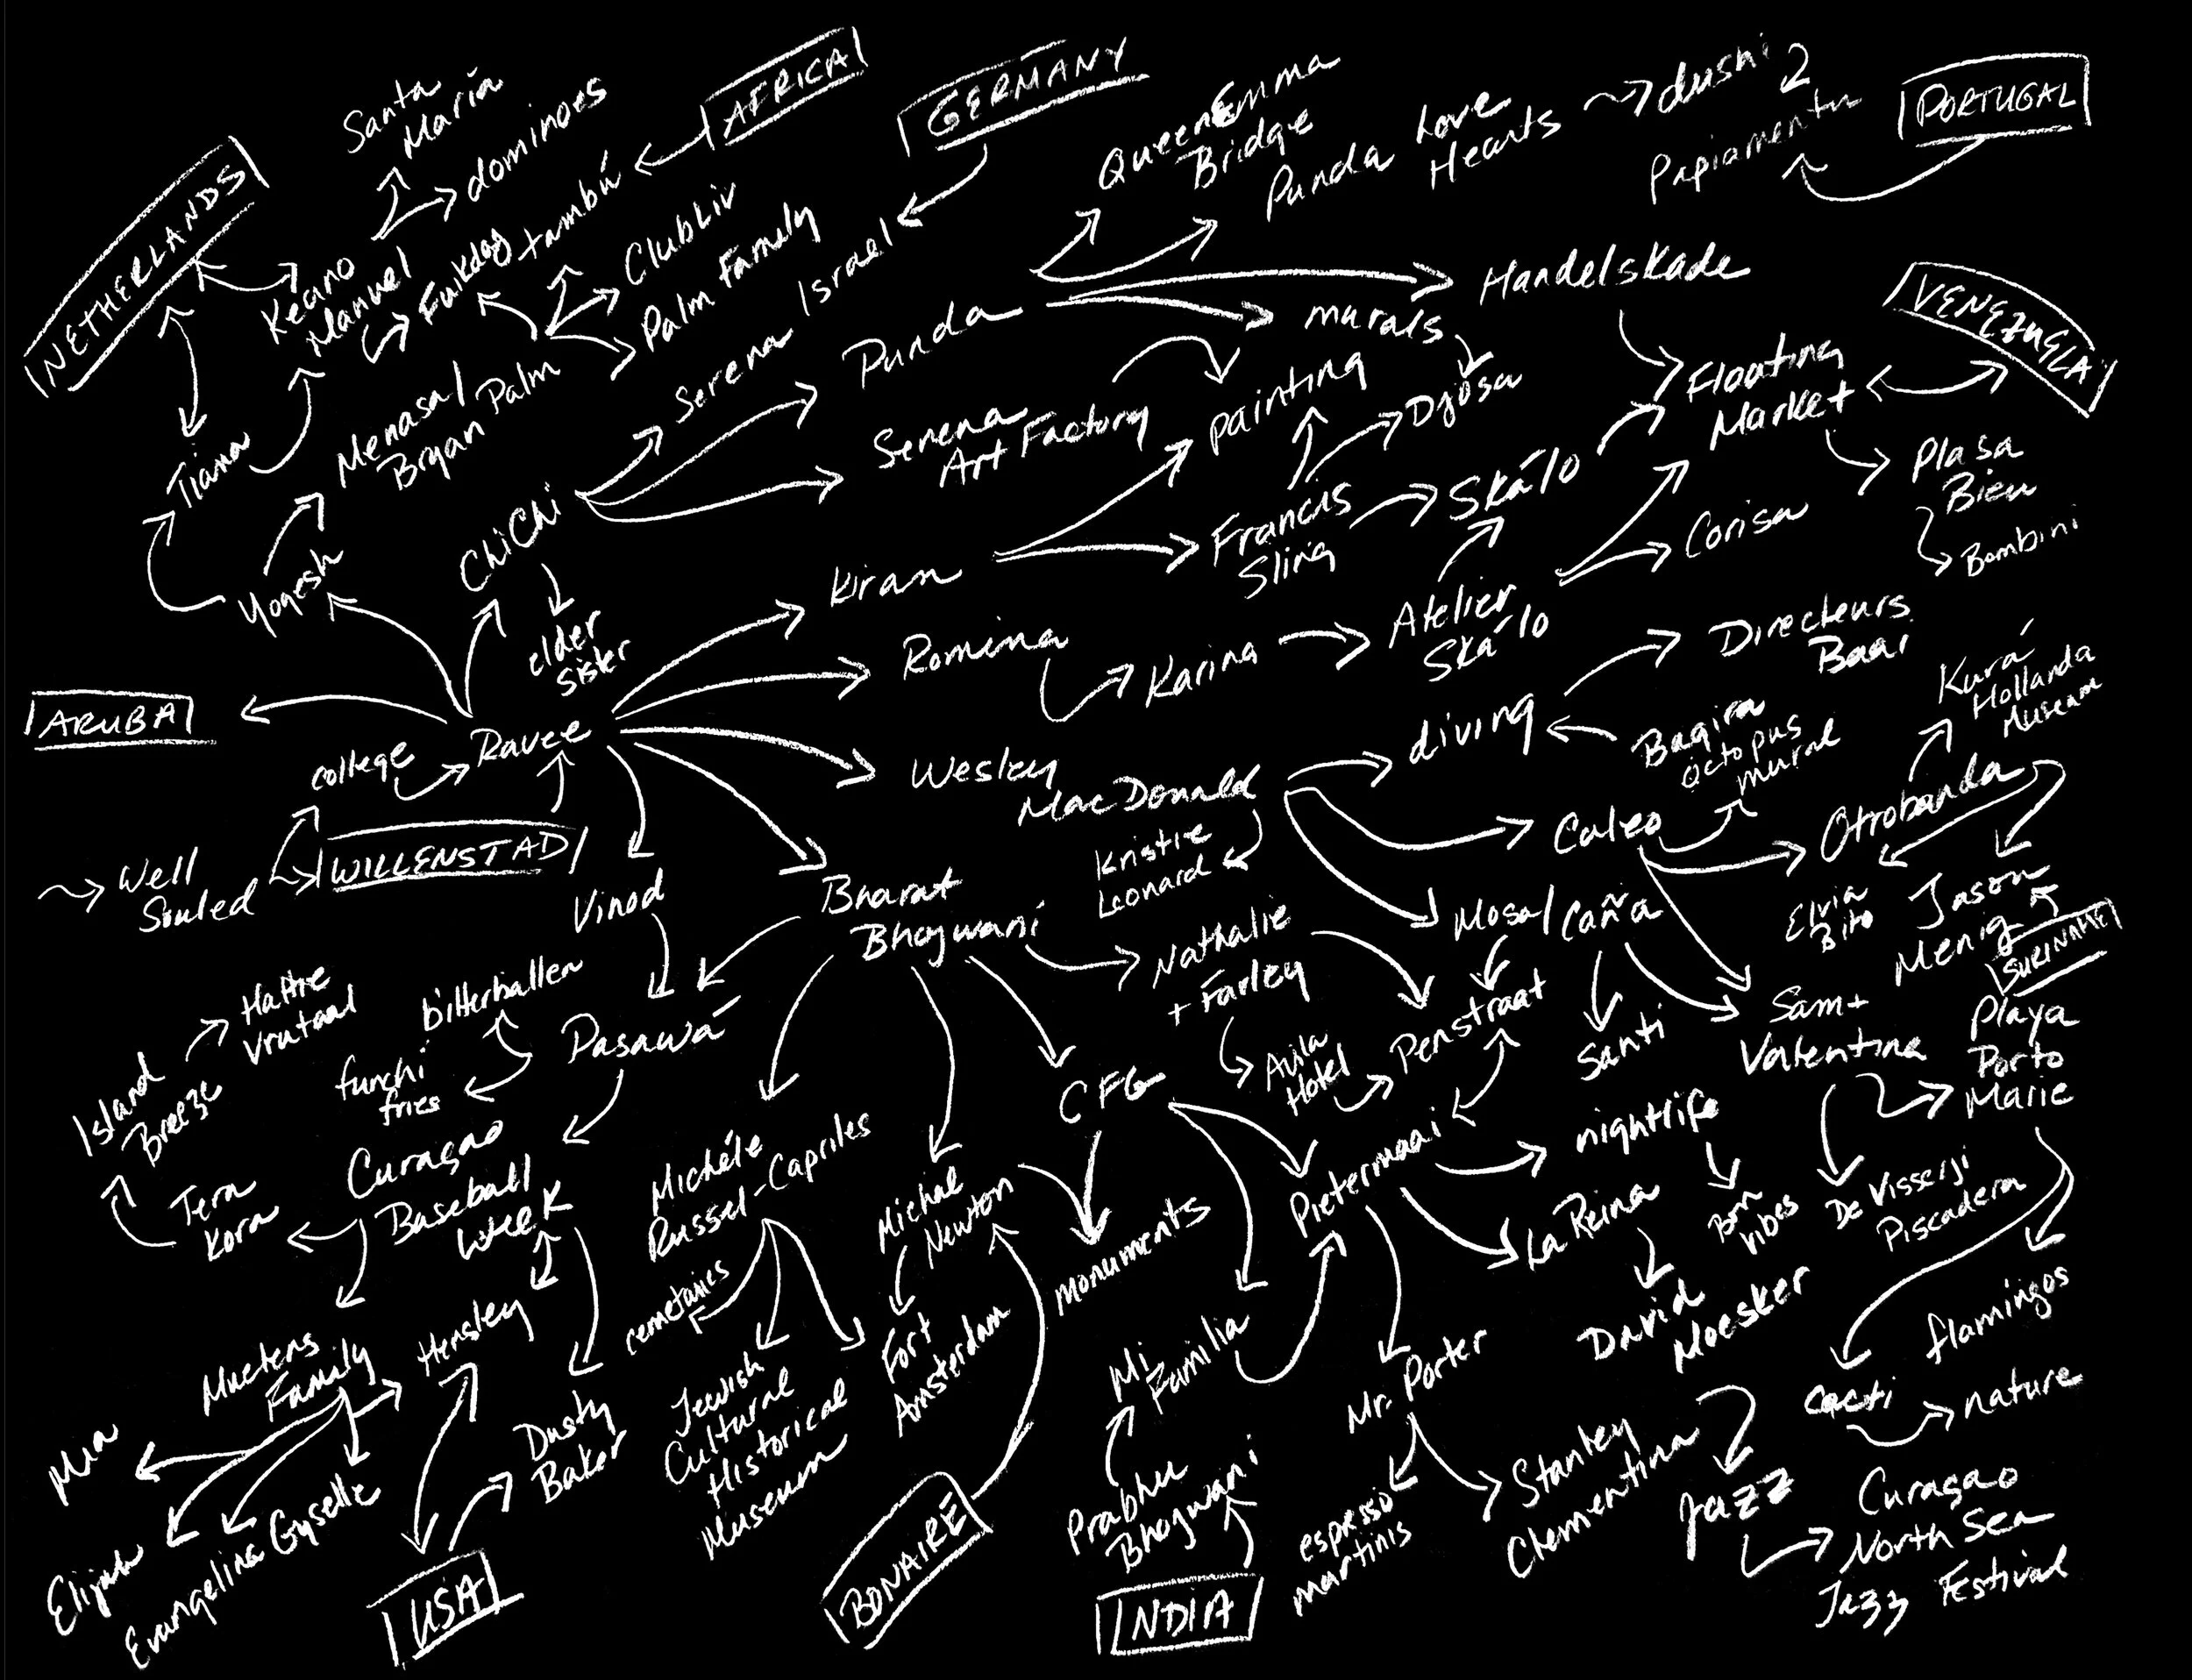 NETHERLANDS
Santa
María
dominoes
AFRICA
GERMANY
Queen Emma
Bridge
Punda Love
Hearts
dushi
2
Papiamentu
PORTUGAL
Keano
Manuel
Fuikdag
tambú
ClubLiv
Palm Family
Serena Israel
Punda
murals
Handelskade
VENEZUELA
Tiana
Menasa/
Bryan Palm
Serena
Art Factory
painting
Djosa
Floating
Market
Plasa
Bieu
Bombini
Yogesh
ChiChi
elder
sister
Kiran
Francis
Sling
Skálo
Corisa
Romina
Karina
Atelier
Skálo
Directeurs
Baai
Kurá
Hollanda
Museum
ARUBA
college
Ravee
Wesley
MacDonald
diving
Bagira
octopus
mural
Well
Souled
WILLENSTAD
Kristie
Leonard
Caleo
Otrobanda
Vinod
Bharat
Bhojwani
Nathalie
+ Farley
Mosa/Caña
Elvia
Bito
Jason
Menig
SURINAME
Hattie
Vrutaal
bitterballen
Island
Breeze
funchi
fries
Pasawá
CFG
Avila
Hotel
Penstraat
Santi
Sam +
Valentina
Playa
Porto
Marie
Tera
Kora
Curaçao
Baseball
Week
Michéle
Russel-Capriles
Michael
Newton
monuments
Pietermaai
nightlife
Bon
vibes
De Visserji
Piscadera
La Reina
Muelens
Family
Hensley
cemetaries
Jewish
Cultural
Historical
Museum
Fort
Amsterdam
Mi
Familia
David
Moesker
flamingos
cacti
nature
Mr. Porter
Mia
Elijah
Evangelina
Gyselle
Dusty
Baker
Prabhu
Bhojwani
espresso
martinis
Stanley
Clementina
Jazz
Curaçao
North Sea
Jazz Festival
USA
BONAIRE
INDIA